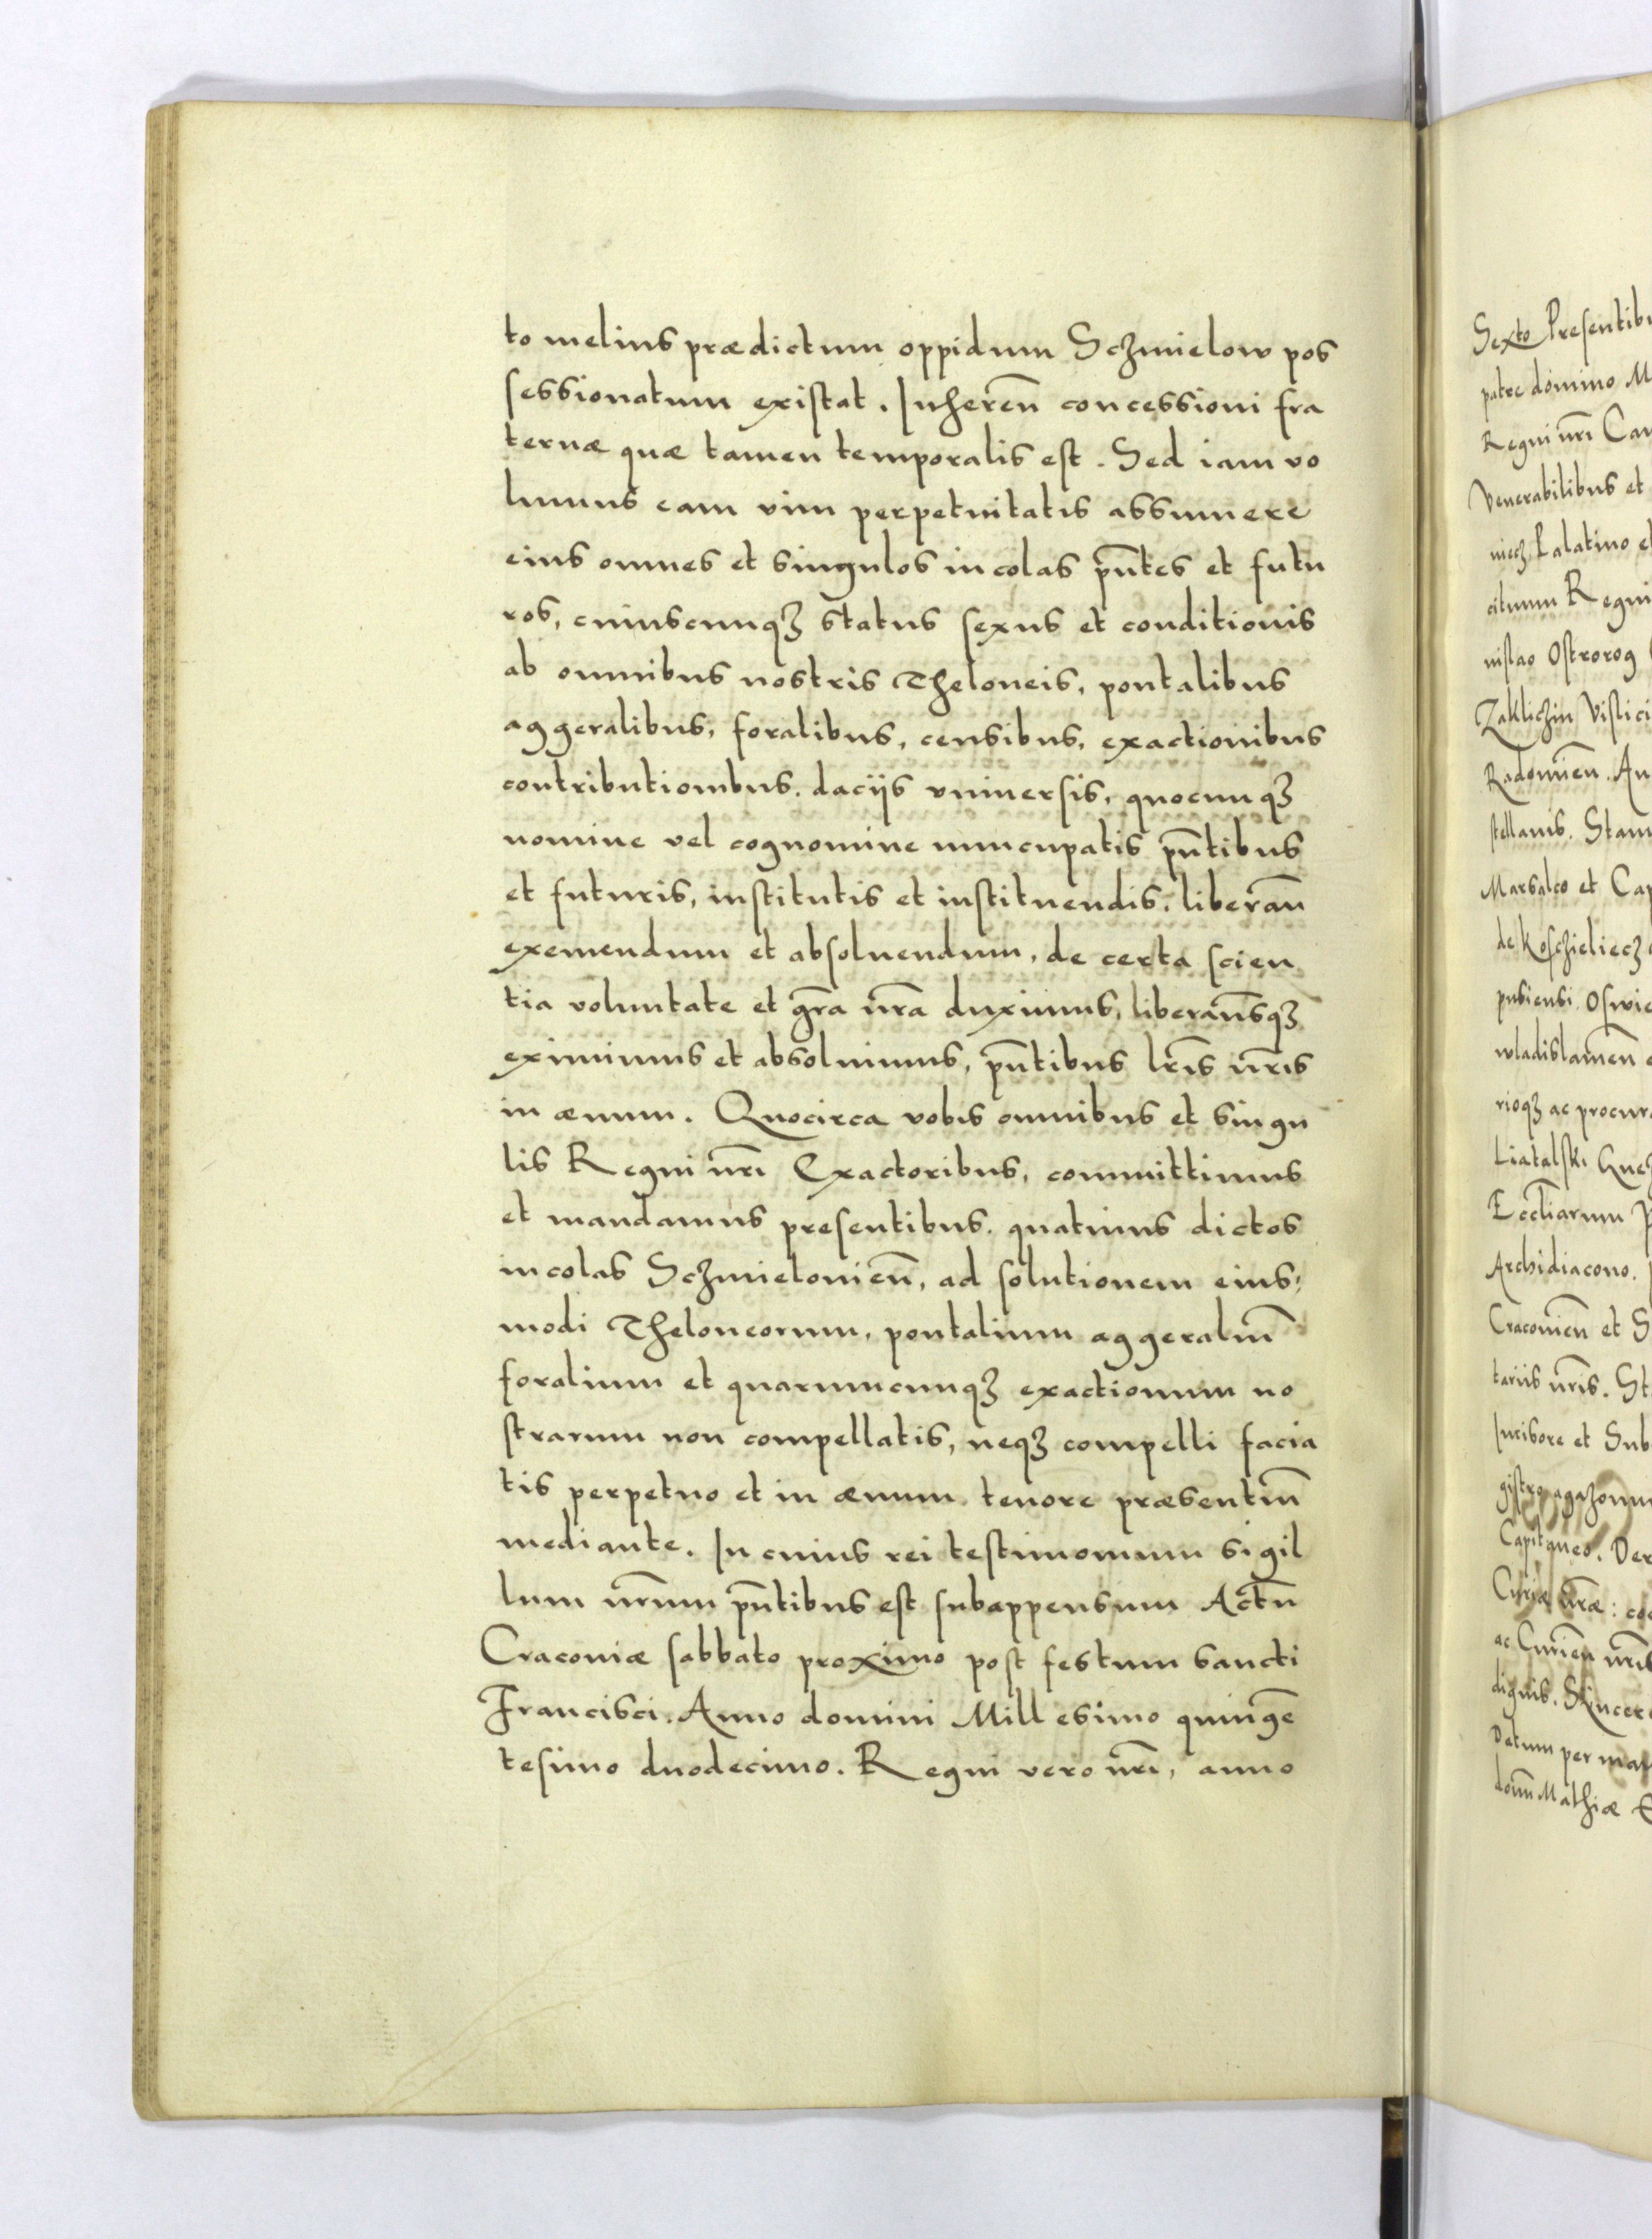 to melius prædictum oppidum Sczmielow pos
sessionatum existat. Inheren̄ concessioni fra
ternæ quæ tamen temporalis est. Sed iam vo
lumus eam vim perpetuitatis assumere
eius omnes et singulos incolas pn̄tes et futu
ros, cuiuscunqꝫ status sexus et conditionis
ab omnibus nostris Theloneis, pontalibus
aggeralibus, foralibus, censibus, exactionibus
contributionibus. daciis vniuersis, quocunqꝫ
nomine vel cognomine nuncupatis pn̄tibus
et futuris, institutis et instituendis. liberan̄
exemendum et absoluendum, de certa scien
tia voluntate et gr̄a nr̄a duximus, liberam̄sqꝫ
eximimus et absoluimus, pn̄tibus lr̄is nr̄is
in æuum. Quocirca vobis omnibus et singu
lis Regni nr̄i Exactoribus, committimus
et mandamus presentibus. quatinus dictos
incolas Sczmielouien̄, ad solutionem eius:
modi Theloneorum, pontalium aggeraliū
foralium et quarumcunqꝫ exactionum no
strarum non compellatis, neqꝫ compelli facia
tis perpetuo et in æuum tenore præsentiū
mediante. In cuius rei testimonium sigil
lum nr̄um pn̄tibus est subappensum Actū
Cracouiæ sabbato proximo post festum sancti
Francisci. Anno domini Millesimo quingē
tesimo duodecimo. Regni vero nr̄i, anno
Sexto Presentib
patre domino M
Regni nr̄i Can
Venerabilibus et
Palatino et
Regni
nislao Ostrorog
Zaklichin Vislici
Radomien̄. An
stellanis. Stan
Marsalco et Cap
de Koschieliecz
wladislauien̄
rioqꝫ ac procur
Eccl̄iarum
Archidiacono.
Cracouien̄ et S
tariis nr̄is. St
Incisore et Sub
Capitaneo. Der
Curiæ nr̄æ: co
ac Curien̄ nr̄is
dignis. Sincer
Datum per man
Mathiæ